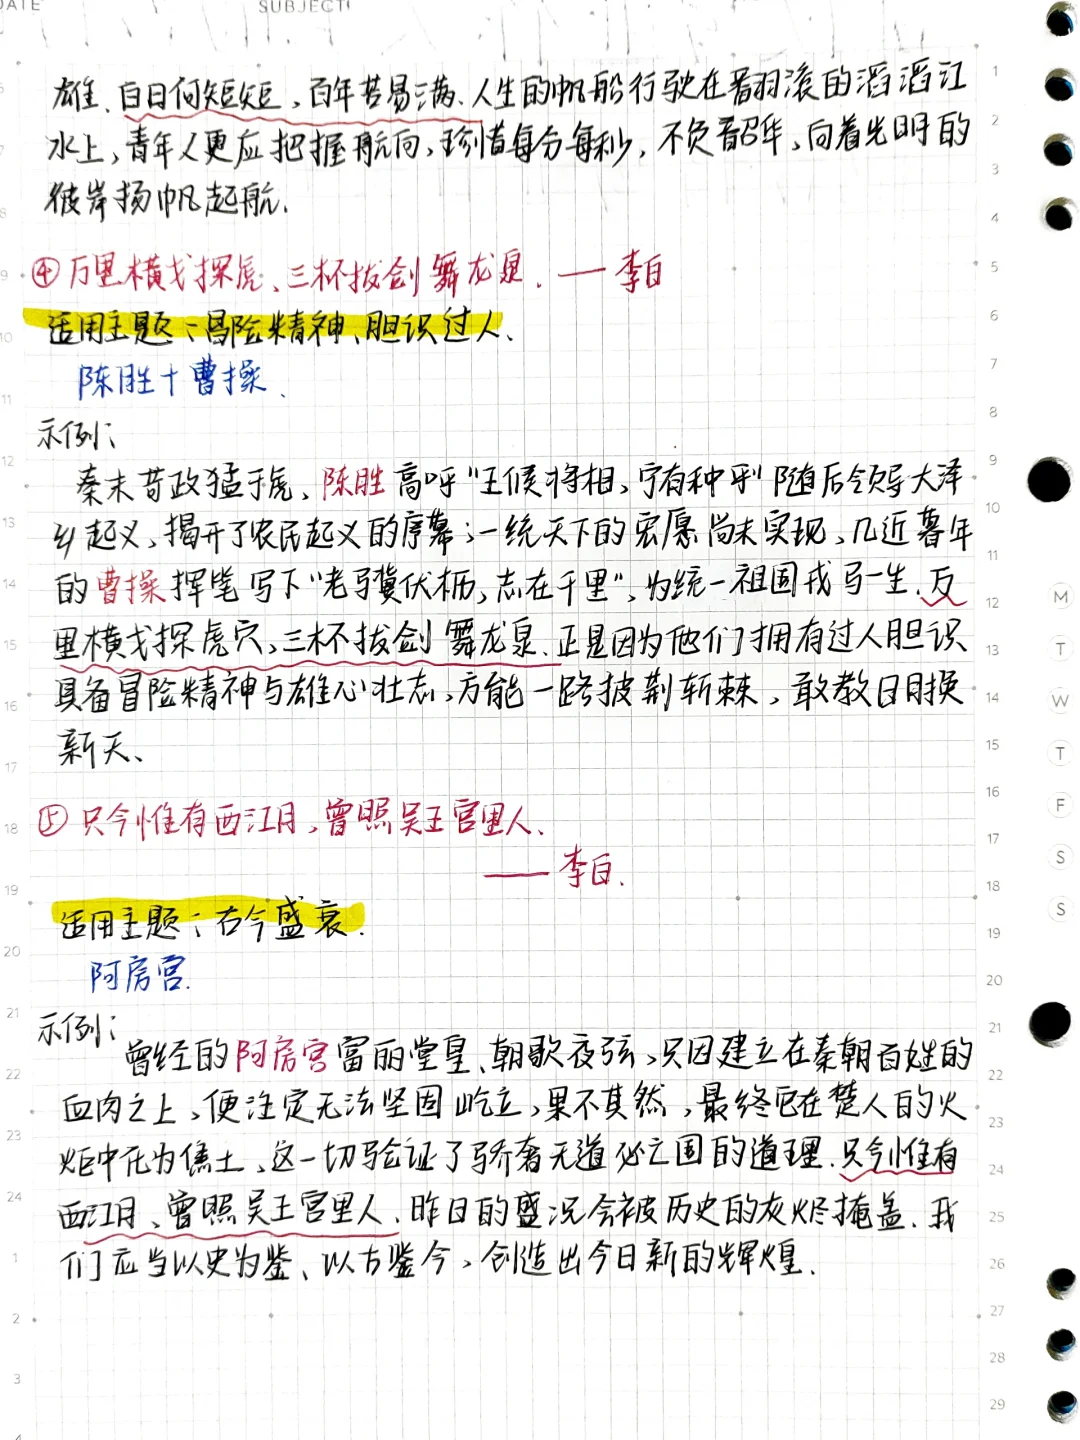 DATE
SUBJECT:
雄.白日何短短,百年苦易满.人生的帆船行驶在翻滚的滔滔江
水上,青年人更应把握航向,珍惜每分每秒,不负韶华,向着光明的
彼岸扬帆起航.
④万里横戈探虎、三杯拔剑舞龙泉.——李白
适用主题:冒险精神、胆识过人.
陈胜+曹操.
示例:
秦末苛政猛于虎,陈胜高呼“王候将相,宁有种乎”随后领导大泽
乡起义,揭开了农民起义的序幕;一统天下的宏愿尚未实现,几近暮年
的曹操挥笔写下“老骥伏枥,志在千里”,为统一祖国戎马一生.万
里横戈探虎穴,三杯拔剑舞龙泉.正是因为他们拥有过人胆识
具备冒险精神与雄心壮志,方能一路披荆斩棘,敢教日月换
新天、
⑤只今惟有西江月,曾照吴王宫里人.
——李白.
适用主题:古今盛衰.
阿房宫.
示例:
曾经的阿房宫富丽堂皇、朝歌夜弦,只因建立在秦朝百姓的
血肉之上,便注定无法坚固屹立,果不其然,最终它在楚人的火
炬中化为焦土,这一切验证了骄奢无道必亡国的道理.只今惟有
西江月、曾照吴王宫里人.昨日的盛况今被历史的灰烬掩盖.我
们应当以史为鉴、以古鉴今,创造出今日新的辉煌.
M
T
W
T
F
S
S